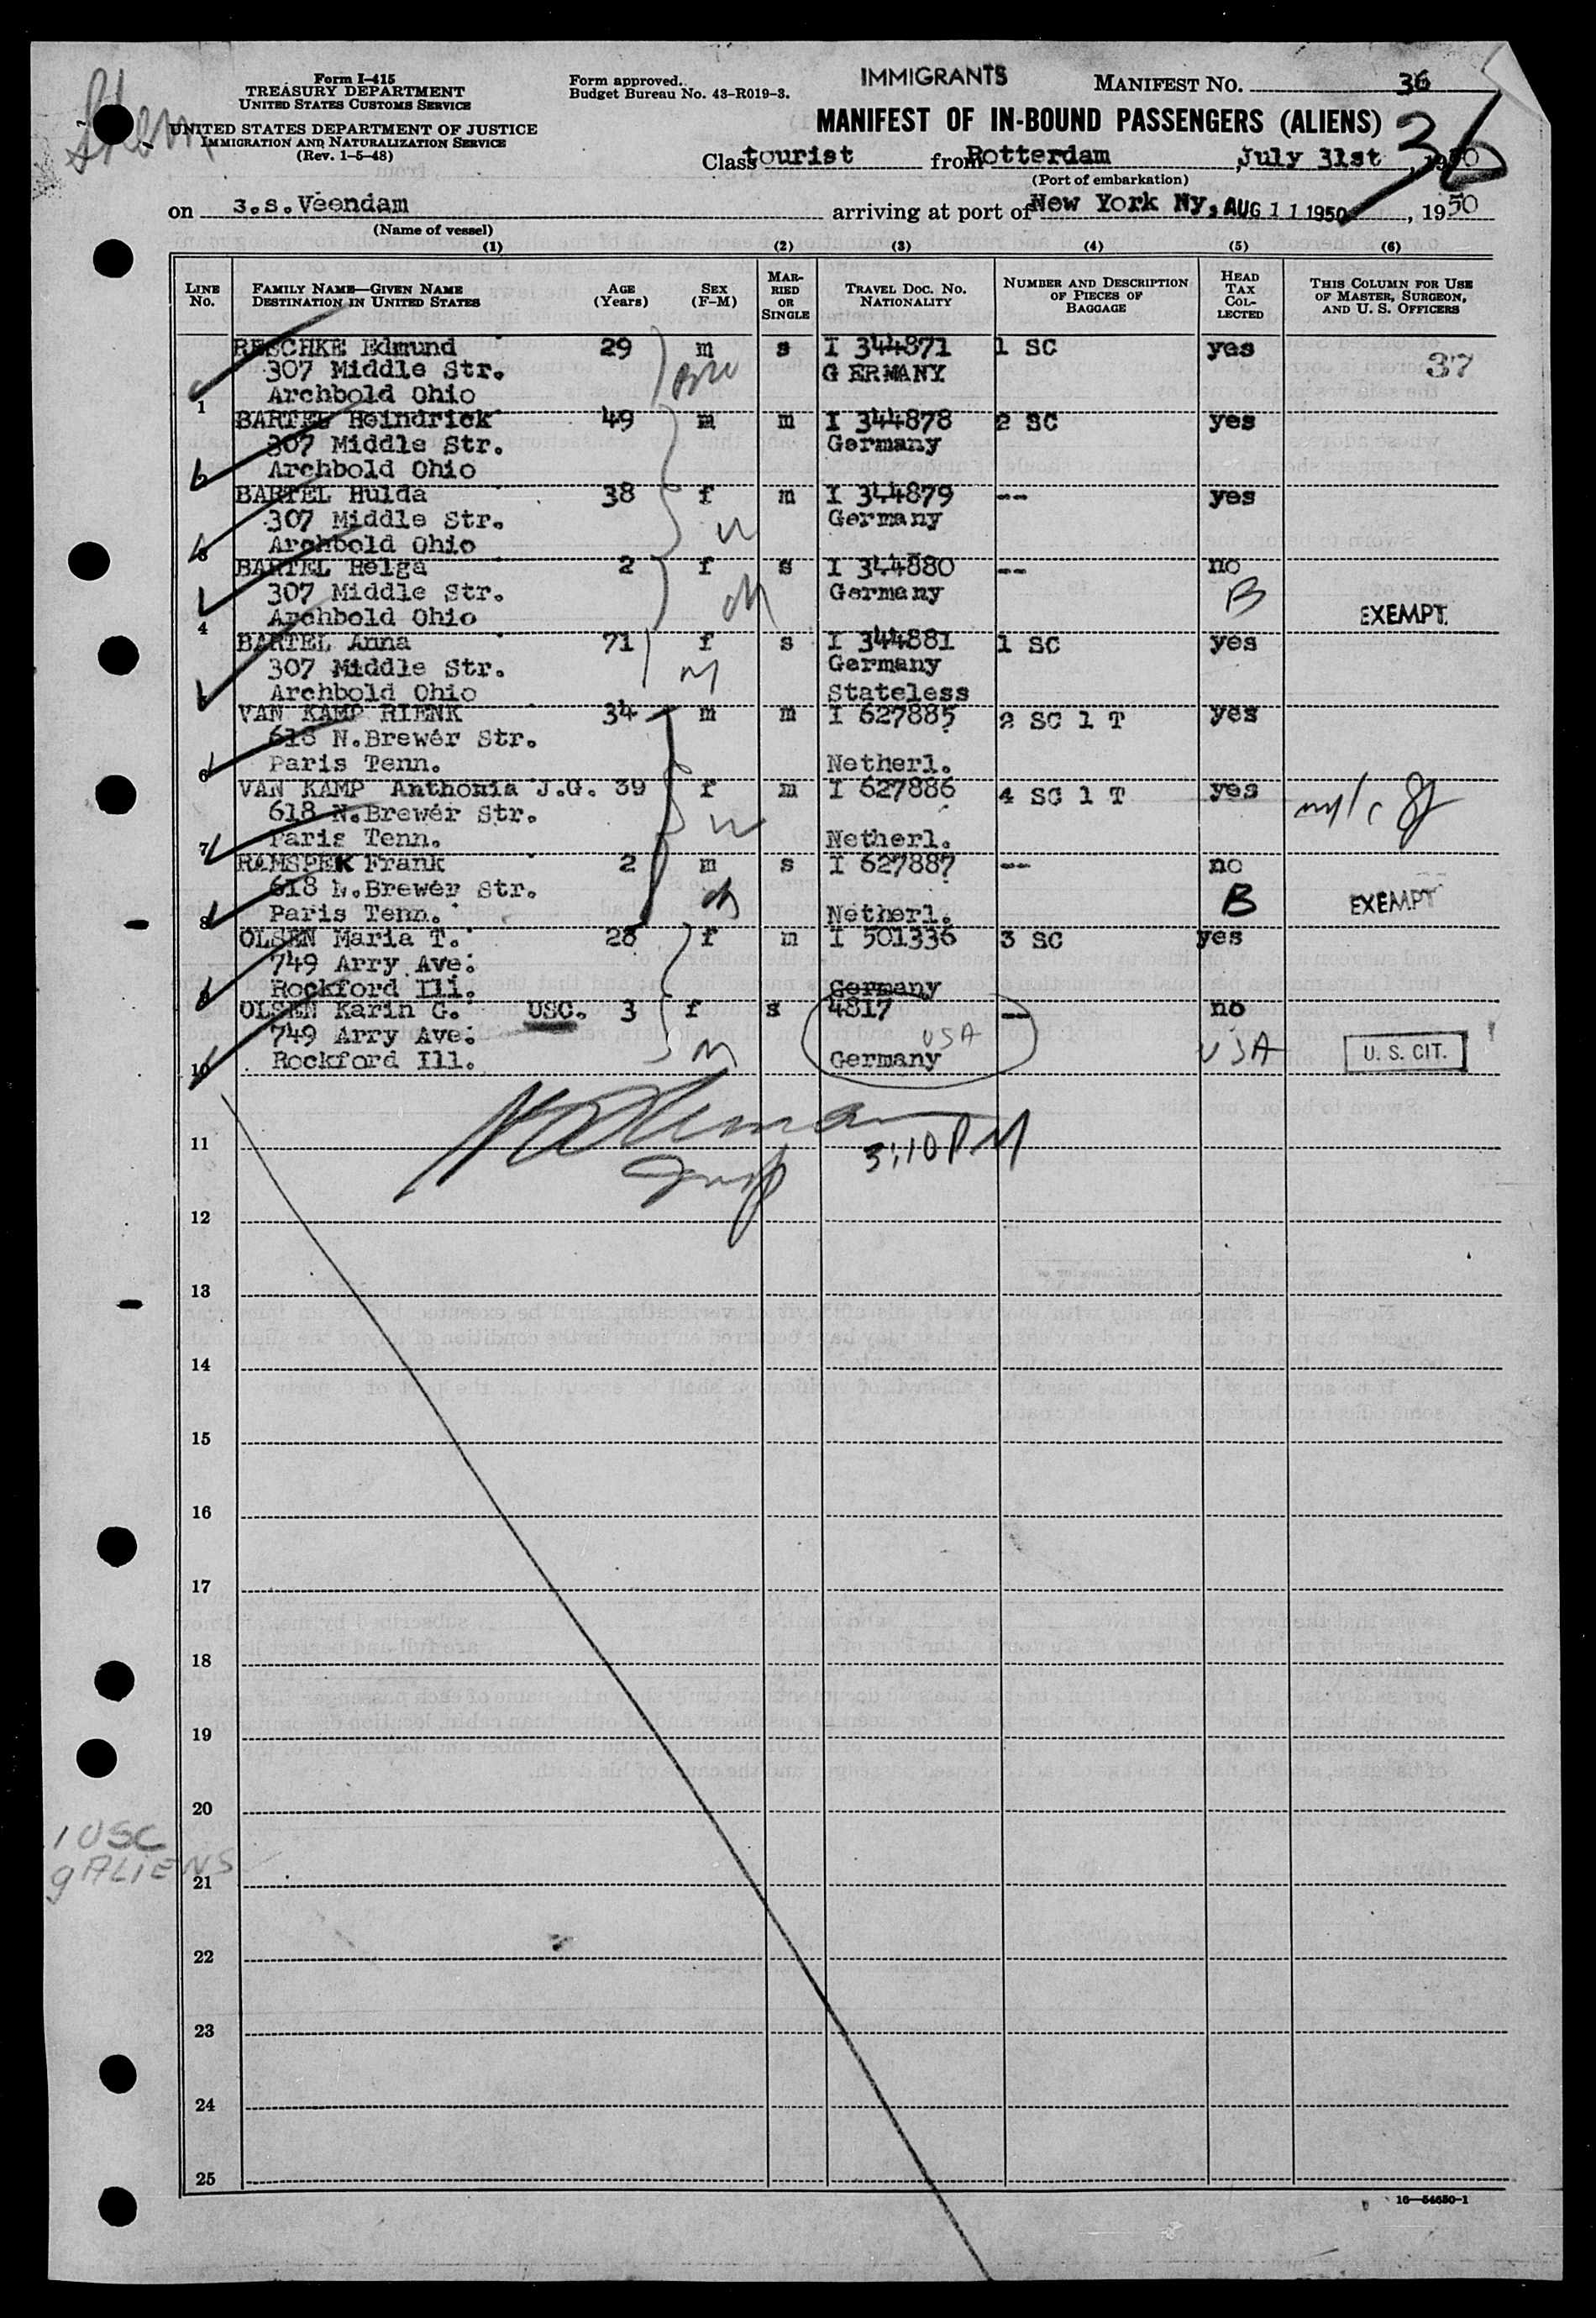 Form I-415
TREASURY DEPARTMENT
UNITED STATES CUSTOMS SERVICE
UNITED STATES DEPARTMENT OF JUSTICE
IMMIGRATION AND NATURALIZATION SERVICE
(Rev. 1-5-48)
Form approved.
Budget Bureau No. 43-R019-3.
IMMIGRANTS
MANIFEST NO. 36
MANIFEST OF IN-BOUND PASSENGERS (ALIENS)
36
Class tourist from Rotterdam, July 31st, 1950
(Port of embarkation)
on s.s. Veendam arriving at port of New York Ny, AUG 11 1950, 1950
(Name of vessel)
(1) (2) (3) (4) (5) (6)
LINE No. FAMILY NAME—GIVEN NAME DESTINATION IN UNITED STATES AGE (Years) SEX (F-M) MARRIED OR SINGLE TRAVEL DOC. NO. NATIONALITY NUMBER AND DESCRIPTION OF PIECES OF BAGGAGE HEAD TAX COLLECTED THIS COLUMN FOR USE OF MASTER, SURGEON, AND U. S. OFFICERS
RESCHKE Edmund 29 m s I 344871 1 SC yes
307 Middle Str. GERMANY 37
1 Archbold Ohio
BARTEL Heindrick 49 m m I 344878 2 SC yes
307 Middle Str. Germany
Archbold Ohio
BARTEL Hulda 38 f m I 344879 -- yes
307 Middle Str. Germany
3 Archbold Ohio
BARTEL Helga 2 f s I 344880 -- no
307 Middle Str. Germany B
4 Archbold Ohio EXEMPT.
BARTEL Anna 71 f s I 344881 1 SC yes
307 Middle Str. Germany
Archbold Ohio Stateless
VAN KAMP RIENK 34 m m I 627885 2 SC 1 T yes
618 N.Brewer Str.
6 Paris Tenn. Netherl.
VAN KAMP Anthonia J.G. 39 f m I 627886 4 SC 1 T yes
618 N.Brewer Str.
7 Paris Tenn. Netherl.
RAMSPEK Frank 2 m s I 627887 -- no
618 N.Brewer Str. B EXEMPT
8 Paris Tenn. Netherl.
OLSEN Maria T. 28 f m I 501336 3 SC yes
749 Arry Ave.
9 Rockford Ill. Germany
OLSEN Karin G. USC. 3 f s 4817 -- no
749 Arry Ave. USA USA U. S. CIT.
10 Rockford Ill. Germany
11 3:10 PM
12
13
14
15
16
17
18
19
20
1 USC
9 ALIENS
21
22
23
24
25
16—54650-1